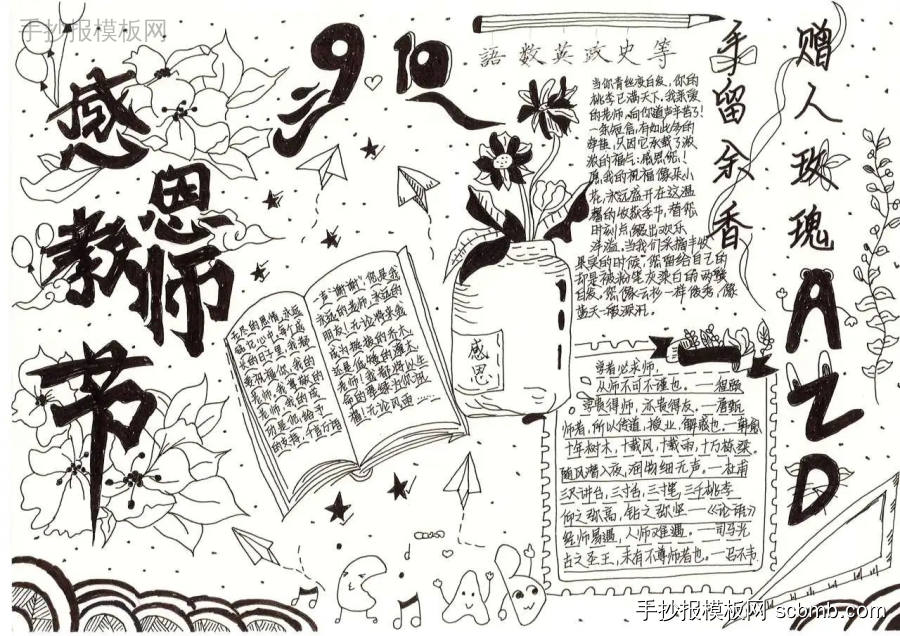 手抄报模板网
感恩教师节
9.10
語数英政史等
当你青丝变白发,你的
桃李已满天下,我亲爱
的老师,向你道声辛苦了!
一条短信,有如此多的
牵挂,只因它承载了浓
浓的福气:感恩您!
愿我的祝福像朵小
花,永远盛开在这温
馨的收获季节,替您
时刻点缀出欢乐
洋溢。当我们采摘丰收
果实的时候,您留给自己的
却是被粉笔灰染白的两鬓
白发。您像云杉一样俊秀,像
蓝天一般深沉。
赠人玫瑰
手留余香
无尽的恩情,永远
铭记心中。每个成
长的日子里,我都
要祝福你,我的
老师。我尊敬的
老师,我的成
功是你给予
的支持,千言万语
一声“谢谢”。您是我
永远的老师,永远的
朋友!无论将来我
成为挺拔的乔木,
还是低矮的灌木,
老师!我都将以生
命的翠绿为你祝
福!无论风雨……
感恩
学者必求师,
从师不可不谨也。——程颐
学贵得师,亦贵得友。——唐甄
师者,所以传道,授业,解惑也。—韩愈
十年树木,十载风,十载雨,十万栋梁。
随风潜入夜,润物细无声。—杜甫
三尺讲台,三寸舌,三寸笔,三千桃李
仰之弥高,钻之弥坚——《论语》
经师易遇,人师难遇。——司马光
古之圣王,未有不尊师者也。—吕不韦
AZD
手抄报模板网 scbmb.com